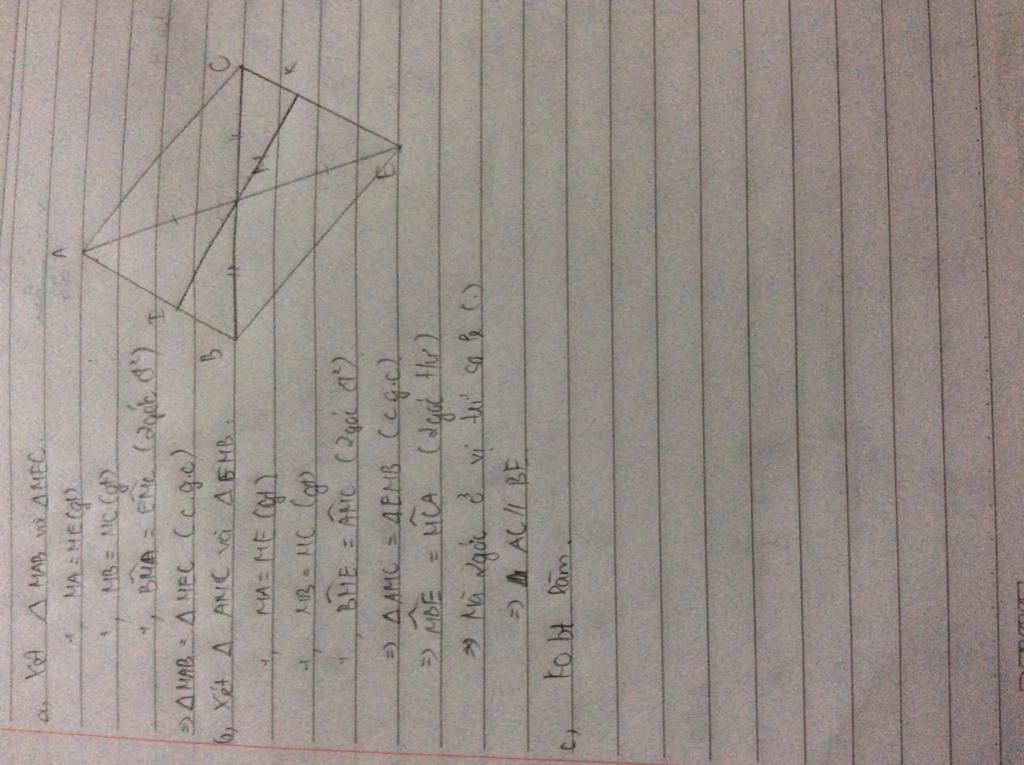 a, Xét Δ MAB và ΔMEC.
+, MA = ME (gt)
+, MB = MC (gt)
+, BMA = EMC (2góc đ²)
⇒ ΔMAB = ΔMEC (c.g.c)
b, Xét Δ AMC và Δ EMB.
+, MA = ME (gt)
+, MB = MC (gt)
+, BME = AMC (2góc đ²)
⇒ ΔAMC = ΔEMB (c.g.c)
⇒ MBE = MCA (2góc t/ư)
⇒ Mà 2góc ở vị trí
⇒ AC // BE
c, Ko bt làm.
A
I
B
C
K
M
E